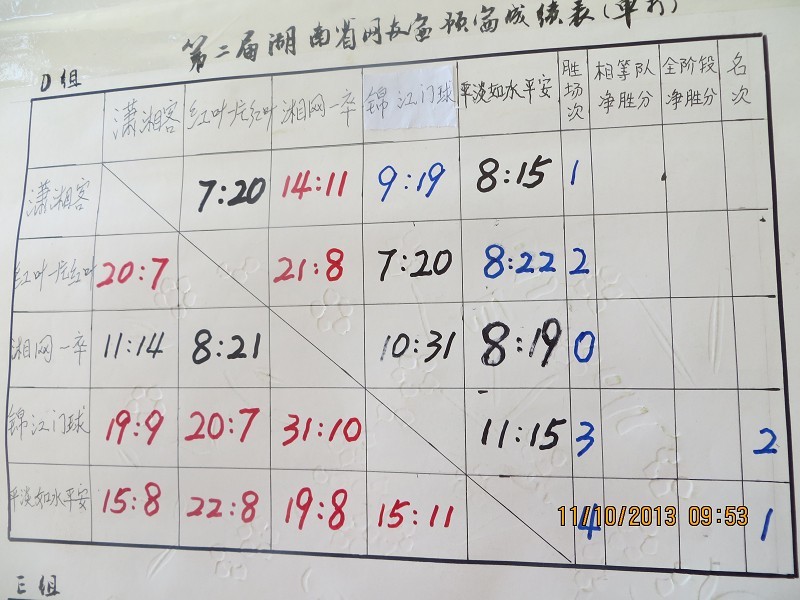 第二届湖南省网友会预赛成绩表(单打)
D组
潇湘客 红叶一片红叶 湘网一卒 锦江门球 平淡如水平安 胜场次 相等队净胜分 全阶段净胜分 名次
潇湘客 7:20 14:11 9:19 8:15 1
红叶一片红叶 20:7 21:8 7:20 8:22 2
湘网一卒 11:14 8:21 10:31 8:19 0
锦江门球 19:9 20:7 31:10 11:15 3 2
平淡如水平安 15:8 22:8 19:8 15:11 4 1
11/10/2013 09:53
E组